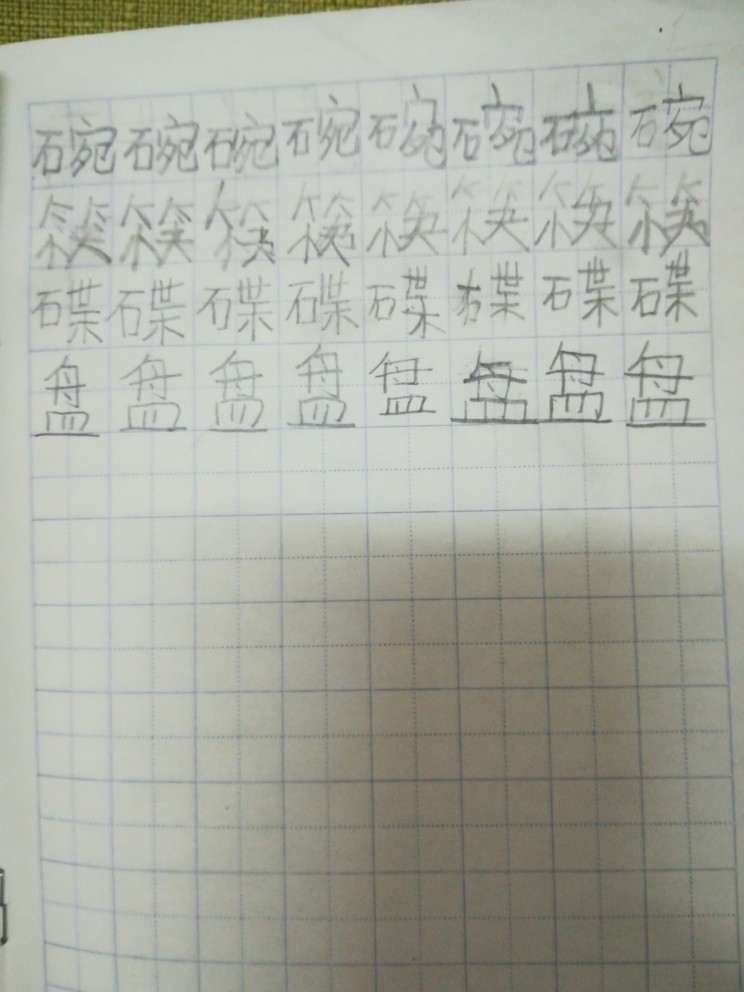 碗碗碗碗碗碗碗碗
筷筷筷筷筷筷筷筷
碟碟碟碟碟碟碟碟
盘盘盘盘盘盘盘盘